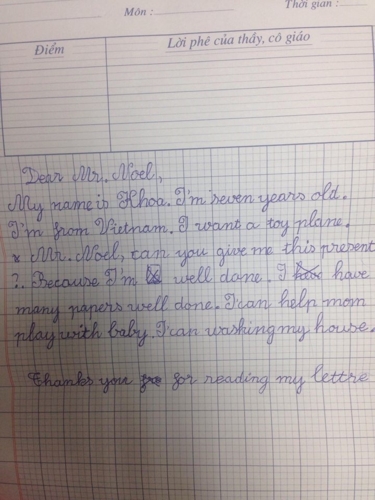 Môn :
Thời gian :
Điểm
Lời phê của thầy, cô giáo
Dear Mr. Noel,
My name is Khoa. I'm seven years old.
I'm from Vietnam. I want a toy plane.
* Mr. Noel, can you give me this present
?. Because I'm well done. I have
many papers well done. I can help mom
play with baby. I can washing my house.
Thanks you for reading my lettre